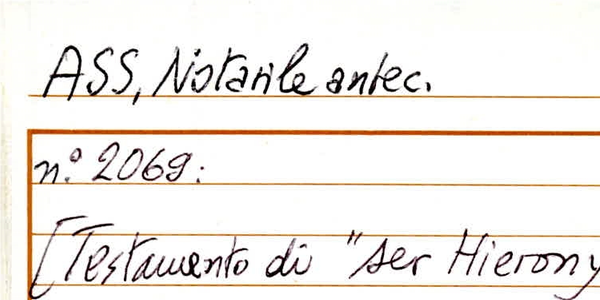 ASS, Notarile antec.
n.° 2069:
[Testamento di "ser Hierony